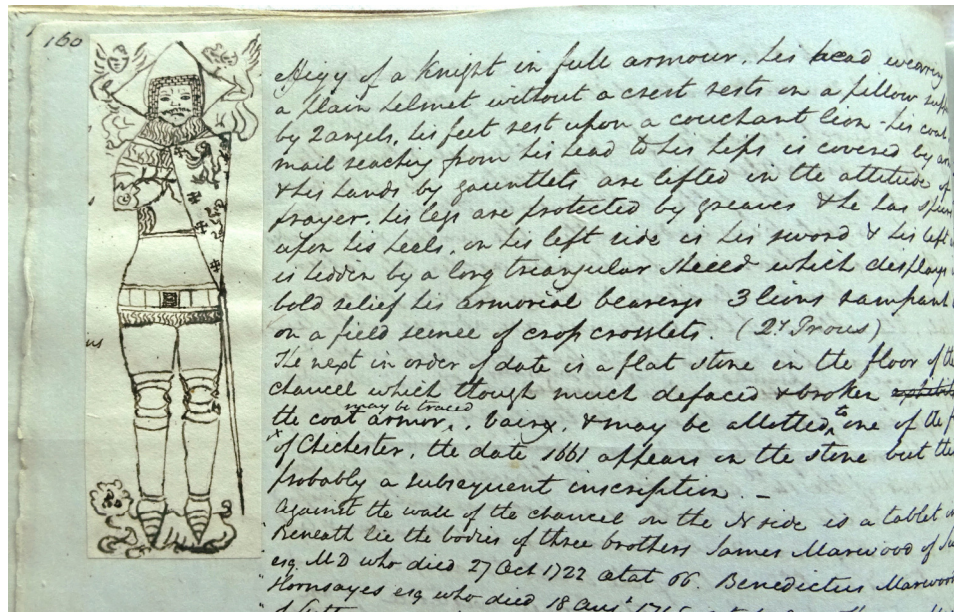 160
Effigy of a Knight in full armour. his head wearing
a plain helmet without a crest rests on a pillow supp
by 2 angels, his feet rest upon a couchant lion - his coat
mail reaching from his head to his hips is covered by an
& his hands by gauntlets are lifted in the attitude of
prayer. his legs are protected by greaves & he has spurs
upon his heels. on his left side is his sword & his left
is hidden by a long triangular sheeld which displays
bold relief his armorial bearings 3 lions rampant
on a field semee of crop crosslets.
The next in order of date is a flat stone in the floor of the
chancel which though much defaced & broken
may be traced
the coat armor, vairy, & may be allotted to one of the f
of Chechester. the date 1661 appears on the stone but the
probably a subsequent inscription. -
Against the wall of the chancel on the N side is a tablet
Beneath lie the bodies of three brothers James Marwood of
esq. M D who died 27 Oct 1722 aetat 66. Benedictus Marwood
Hornsayes esq who died 18 augt